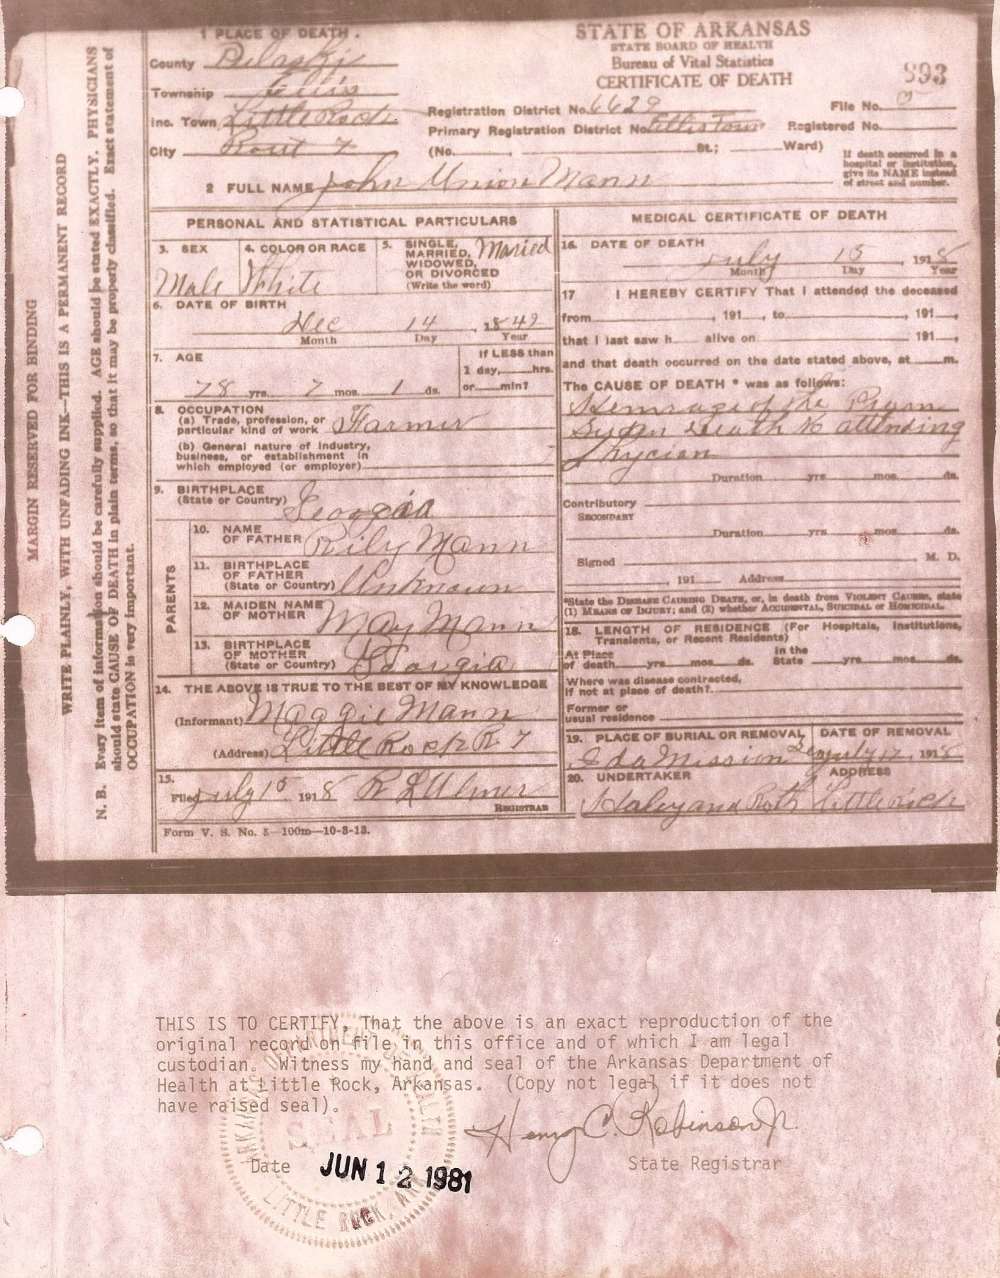 1 PLACE OF DEATH.
County Pulaski
Township Ellis
Inc. Town Little Rock
City Rout 7
STATE OF ARKANSAS
STATE BOARD OF HEALTH
Bureau of Vital Statistics
CERTIFICATE OF DEATH
893
Registration District No. 6629 File No.
Primary Registration District No. Registered No.
(No. St.; Ward)
If death occurred in a
hospital or institution,
give its NAME instead
of street and number.
2 FULL NAME John Union Mann
PERSONAL AND STATISTICAL PARTICULARS
3. SEX
Male
4. COLOR OR RACE
White
5. SINGLE,
MARRIED,
WIDOWED,
OR DIVORCED
(Write the word)
Married
6. DATE OF BIRTH
Dec 14, 1849
Month Day Year
7. AGE
78 yrs. 7 mos. 1 ds.
If LESS than
1 day, hrs.
or min?
8. OCCUPATION
(a) Trade, profession, or
particular kind of work Farmer
(b) General nature of industry,
business, or establishment in
which employed (or employer)
9. BIRTHPLACE
(State or Country) Georgia
PARENTS
10. NAME
OF FATHER Rily Mann
11. BIRTHPLACE
OF FATHER
(State or Country) Unknown
12. MAIDEN NAME
OF MOTHER May Mann
13. BIRTHPLACE
OF MOTHER
(State or Country) Georgia
14. THE ABOVE IS TRUE TO THE BEST OF MY KNOWLEDGE
(Informant) Maggie Mann
(Address) Little Rock R 7
15.
Filed July 15 1918 R L Ulmer
REGISTRAR
Form V. S. No. 5—100m—10-3-13.
MEDICAL CERTIFICATE OF DEATH
16. DATE OF DEATH
July 15, 1918
Month Day Year
17 I HEREBY CERTIFY That I attended the deceased
from , 191 , to , 191 ,
that I last saw h alive on 191 ,
and that death occurred on the date stated above, at m.
The CAUSE OF DEATH * was as follows:
Hemrage of the
death No attending
Phycian
Duration yrs mos. ds.
Contributory
SECONDARY
Duration yrs mos. ds.
Signed M. D.
, 191 Address
*State the DISEASE CAUSING DEATH, or, in death from VIOLENT CAUSES, state
(1) MEANS OF INJURY; and (2) whether ACCIDENTAL, SUICIDAL or HOMICIDAL.
18. LENGTH OF RESIDENCE (For Hospitals, Institutions,
Transients, or Recent Residents)
At Place In the
of death yrs mos. ds. State yrs. mos. ds.
Where was disease contracted,
if not at place of death?
Former or
usual residence
19. PLACE OF BURIAL OR REMOVAL DATE OF REMOVAL
Ida Mission July 17, 1918
20. UNDERTAKER ADDRESS
Haley and Roth Little Rock
MARGIN RESERVED FOR BINDING
WRITE PLAINLY, WITH UNFADING INK—THIS IS A PERMANENT RECORD
N. B. Every item of information should be carefully supplied. AGE should be stated EXACTLY. PHYSICIANS
should state CAUSE OF DEATH in plain terms, so that it may be properly classified. Exact statement of
OCCUPATION is very important.
THIS IS TO CERTIFY, That the above is an exact reproduction of the
original record on file in this office and of which I am legal
custodian. Witness my hand and seal of the Arkansas Department of
Health at Little Rock, Arkansas. (Copy not legal if it does not
have raised seal).
Henry C. Robinson Jr.
Date JUN 12 1981 State Registrar
SEAL
LITTLE ROCK, ARK